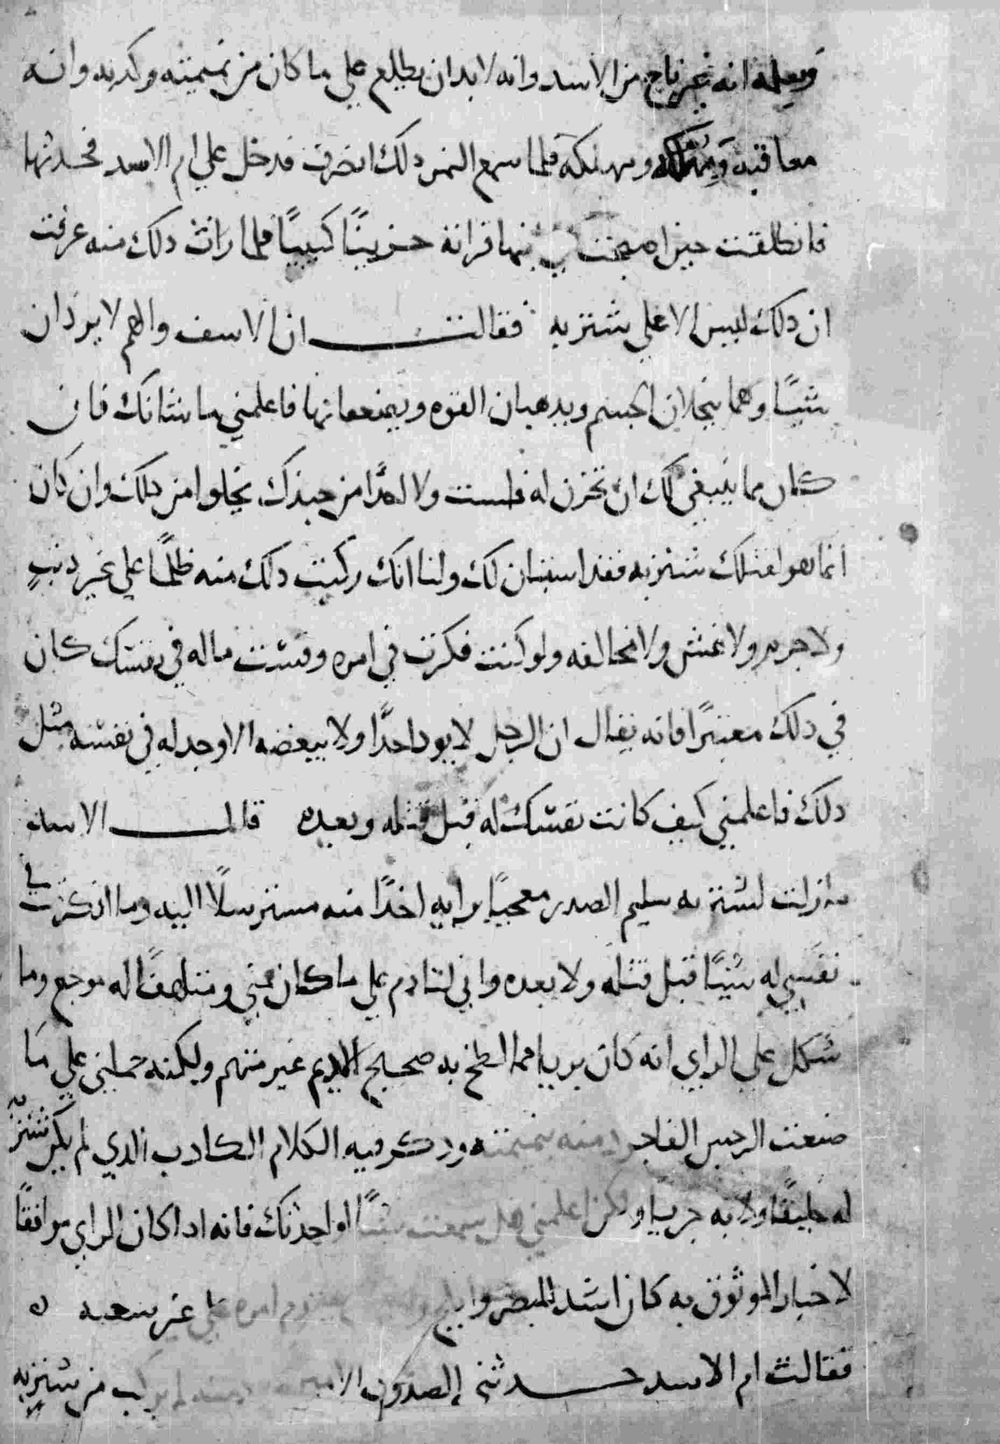 ويعلمه انه غير ناج من الاسد وانه لابد ان يطلع علي ما كان من نميمته وكذبه وانه
معاقبه ومهلكه فلما سمع النمر ذلك انصرف فدخل علي ام الاسد فحدثها
فانطلقت حين اصبحت الي ابنها فراته حزينًا كئيبًا فلما رات ذلك منه عرفت
ان ذلك ليس الا علي شتزبه فقالت ان الاسف والهم لا يردان
شيئًا وهما ينحلان الجسم ويذهبان القوه ويضعفانها فاعلمني ما شانك فان
كان مما ينبغي لك ان تحزن له فلست ولا احدًا من جندك يخلوا من ذلك وان كان
انما هو لقتلك شتزبه فقد استبان لك ولنا انك ركبت ذلك منه ظلمًا علي غير ذنبٍ
ولا جرم ولا غش ولا مخالفه ولو كنت فكرت في امره وقست ماله في نفسك كان
في ذلك معتبرًا فانه يقال ان الرجل لا يود احدًا ولا يبغضه الا وجد له في نفسه مثل
ذلك فاعلمني كيف كانت نفسك له قبل قتله وبعده قال الاسد
ما زلت لشتزبه سليم الصدر معجبًا برايه اخذًا منه مسترسلًا اليه وما انكرت في
نفسي له شيئًا قبل قتله ولا بعده واني لنادم علي ما كان مني ومتلهفًا له موجع وما
شكل علي الراي انه كان بريا مما لطخ به صحيح الاديم غير متهم ولكنه حملني علي ما
صنعت الفاجر دمنه بنميمته وذكره فيه الكلام الكاذب الذي لم يكن شتزبه
له خليقًا ولا به حريًا ولكن اعلميني هل سمعت شيئًا او احدثك فانه اذا كان الراي موافقًا
لاخبار الموثوق به كان اشد للبصر امره علي غير شبهه ه
فقالت ام الاسد حدثني الصدوق الامين دمنه لم يركب من شتزبه